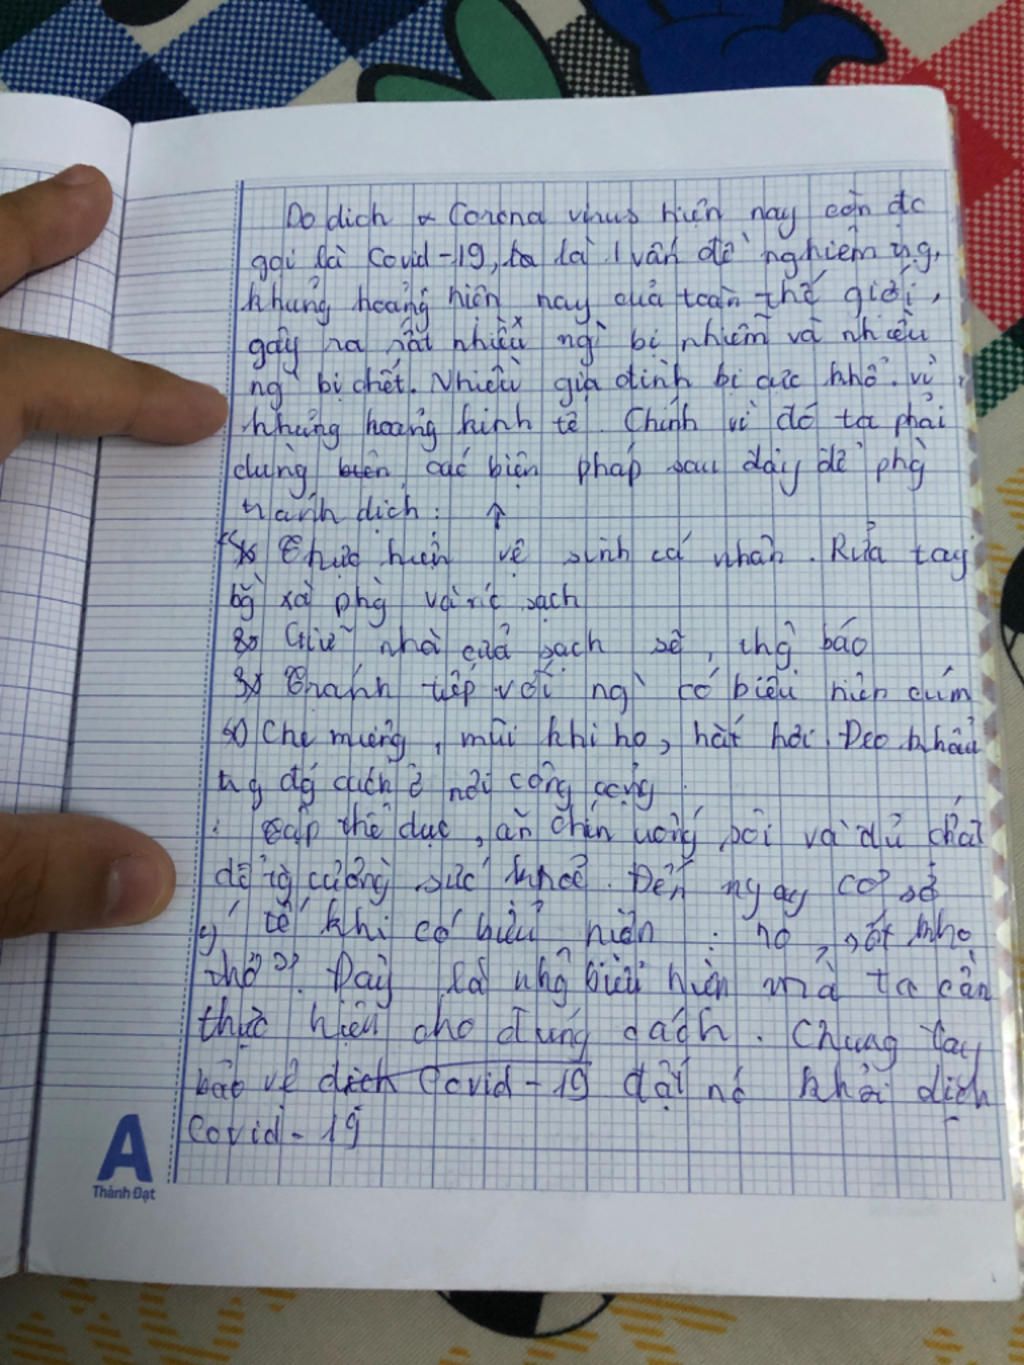 Do dịch Corona virus hiện nay còn đc
gọi là Covid-19, ta là 1 vấn đề nghiêm
khủng hoảng hiện nay của toàn thế giới,
gây ra rất nhiều ng` bị nhiễm và nhiều
ng` bị chết. Nhiều gia đình bị cực khổ vì
khủng hoảng kinh tế. Chính vì đó ta phải
dùng biện các biện pháp sau đây để phg`
tránh dịch:
Thực hiện vệ sinh cá nhân. Rửa tay
bg` xà phg` và sạch
Giữ nhà cửa sạch sẽ, thg báo
Tránh tiếp với ng` có biểu hiện cúm
Che miệng, mũi khi ho, hắt hơi. Đeo khẩu
tg đg cách ở nơi công cộng
Tập thể dục, ăn chín uống sôi và đủ chất
để tg cường sức khoẻ. Đến ngay cơ sở
y tế khi có biểu hiện: ho, sốt khó
thở". Đây là nhg biểu hiện mà ta cần
thực hiện cho đúng cách. Chung tay
bảo vệ dịch Covid-19 đất nc khỏi dịch
Covid-19
A
Thành Đạt